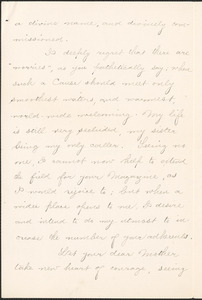 a divine name, and divinely com-
missioned.
I deeply regret that there are
"worries", as you pathetically say; when
such a Cause should meet only
smoothest waters, and warmest,
world wide welcoming. My life
is still very secluded, my sister
being my only caller. Seeing no
one, I cannot now help to extend
the field for your Magazine, as
I would rejoice to; but when a
wider place opens to me, I desire
and intend to do my utmost to in-
crease the number of your adherents.
Let your dear Mother
take new heart of courage, seeing